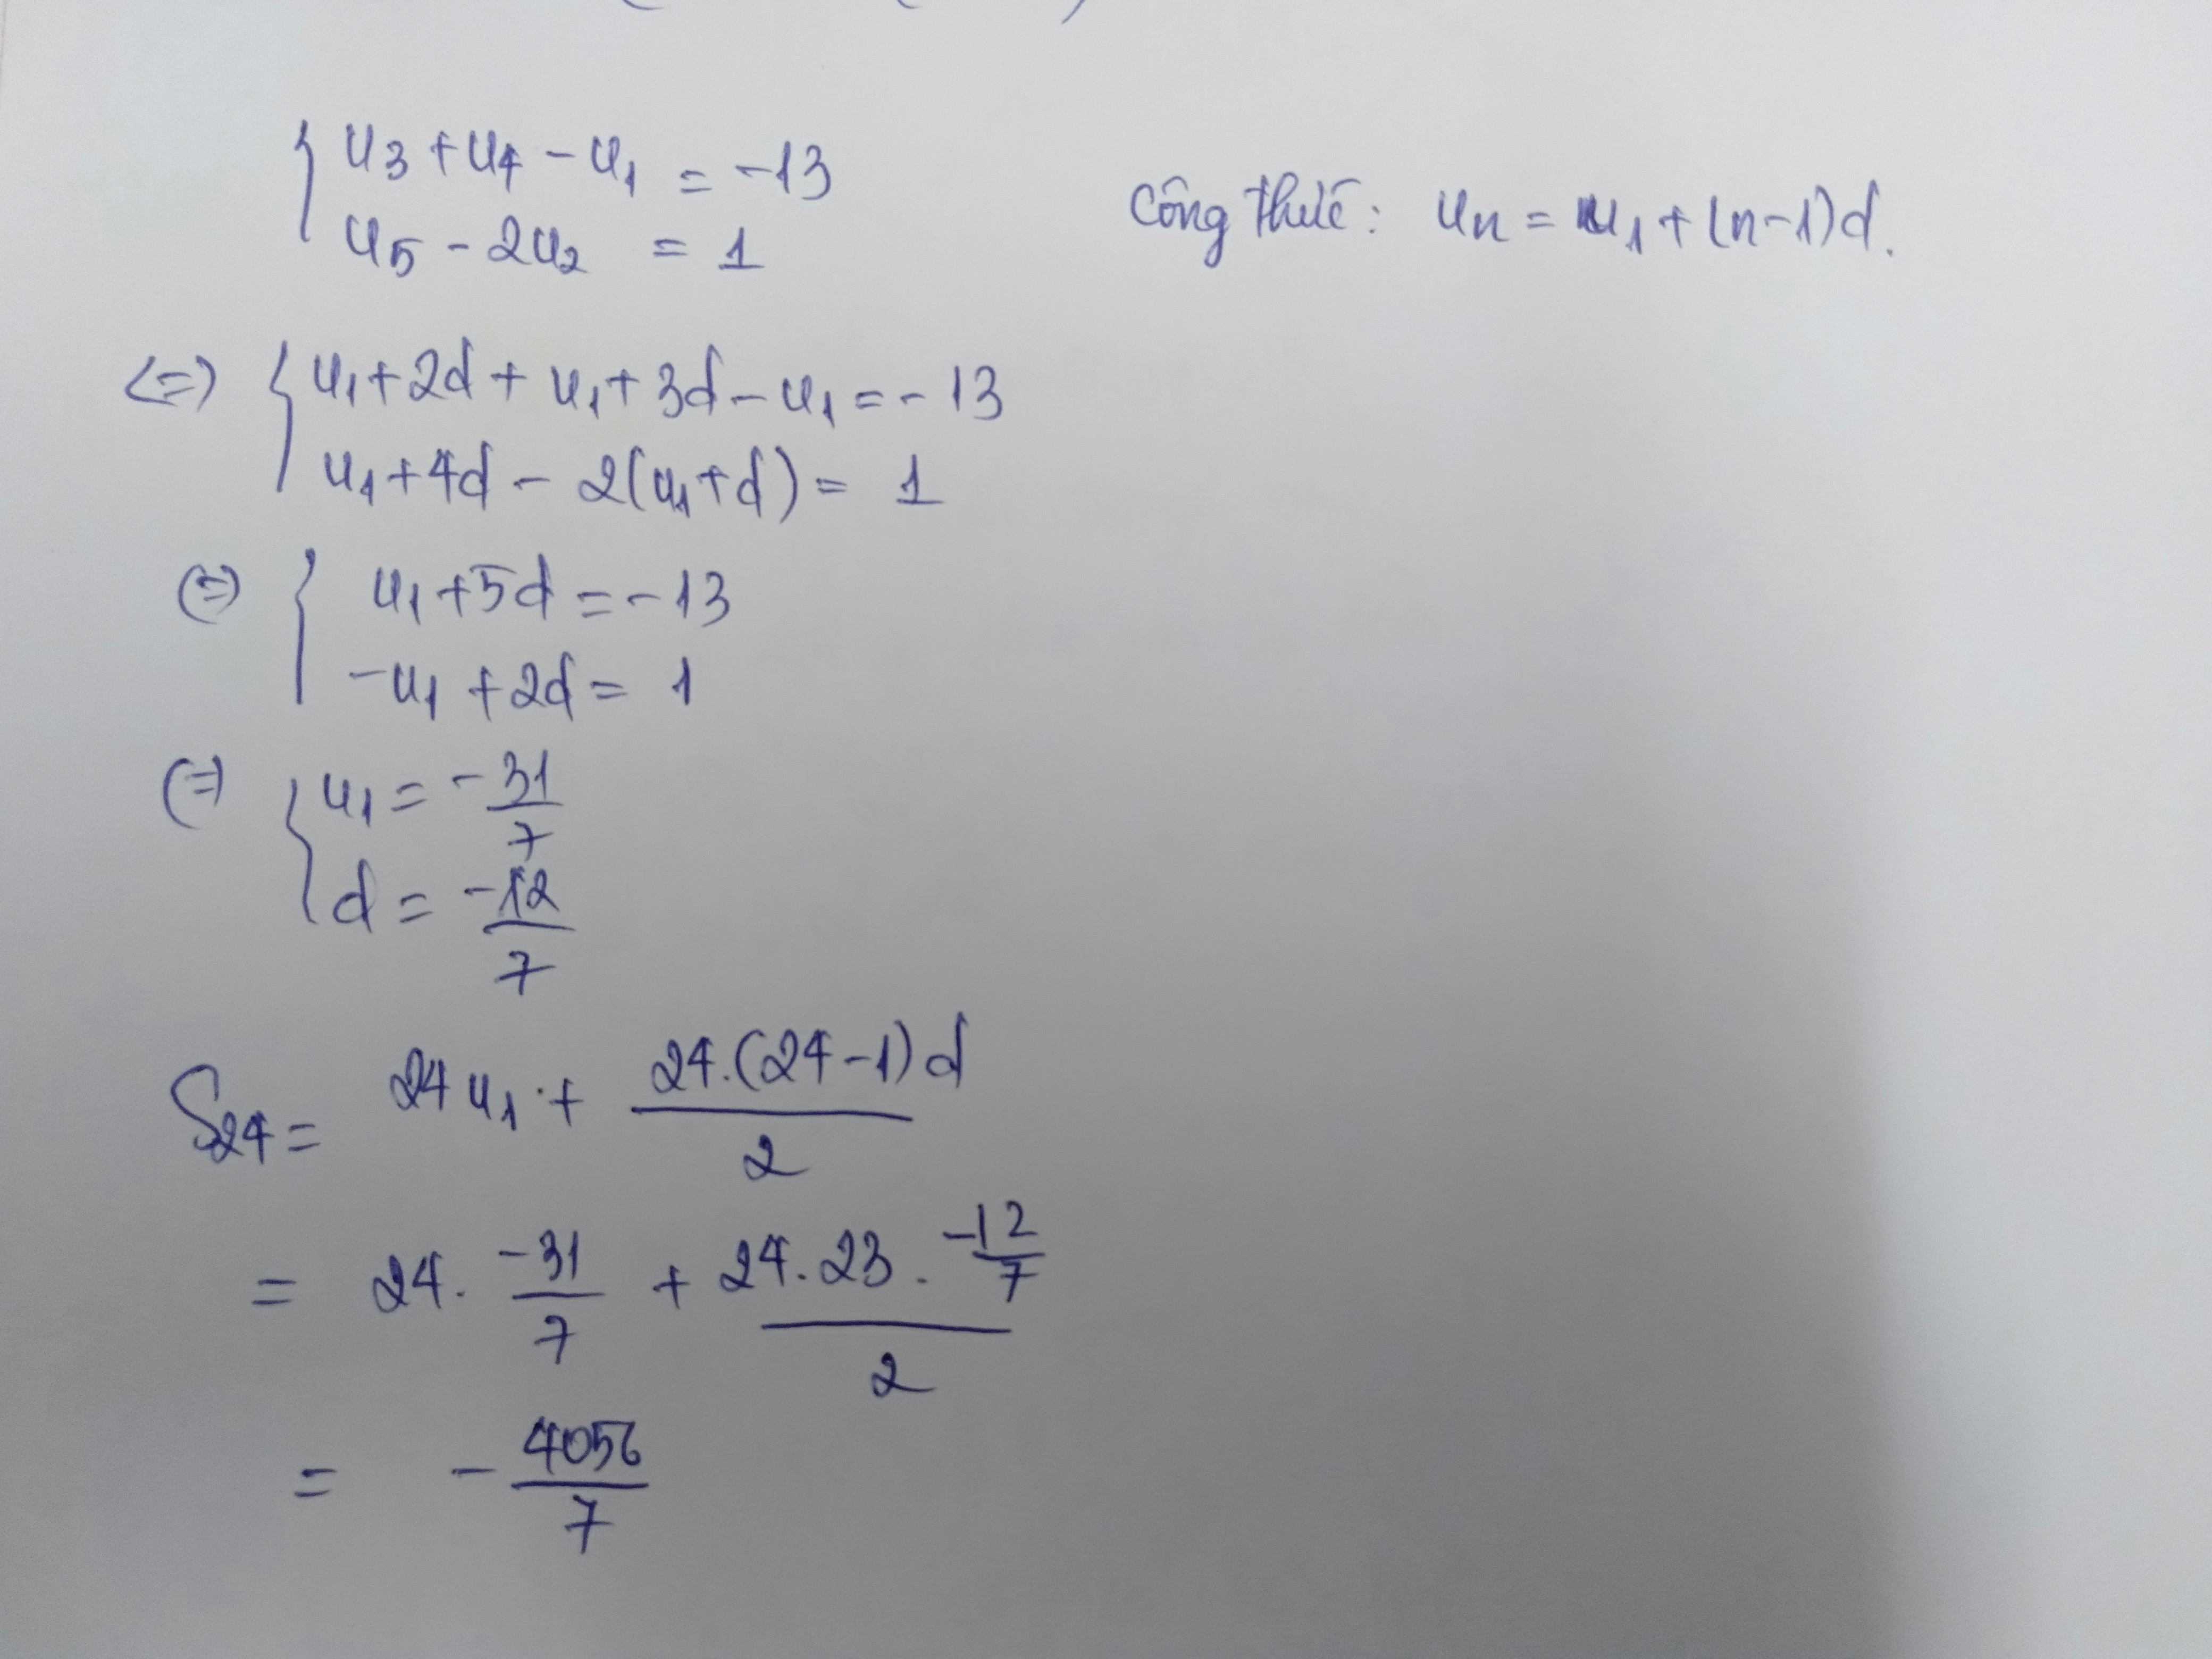 { u₃ + u₄ - u₁ = -13
u₅ - 2u₂ = 1
Công thức: uₙ = u₁ + (n-1)d.
<=> { u₁ + 2d + u₁ + 3d - u₁ = -13
u₁ + 4d - 2(u₁ + d) = 1
(=) { u₁ + 5d = -13
-u₁ + 2d = 1
(=) { u₁ = -31/7
d = -12/7
S₂₄ = 24u₁ + 24.(24-1)d/2
= 24. -31/7 + 24.23. -12/7 / 2
= - 4056/7